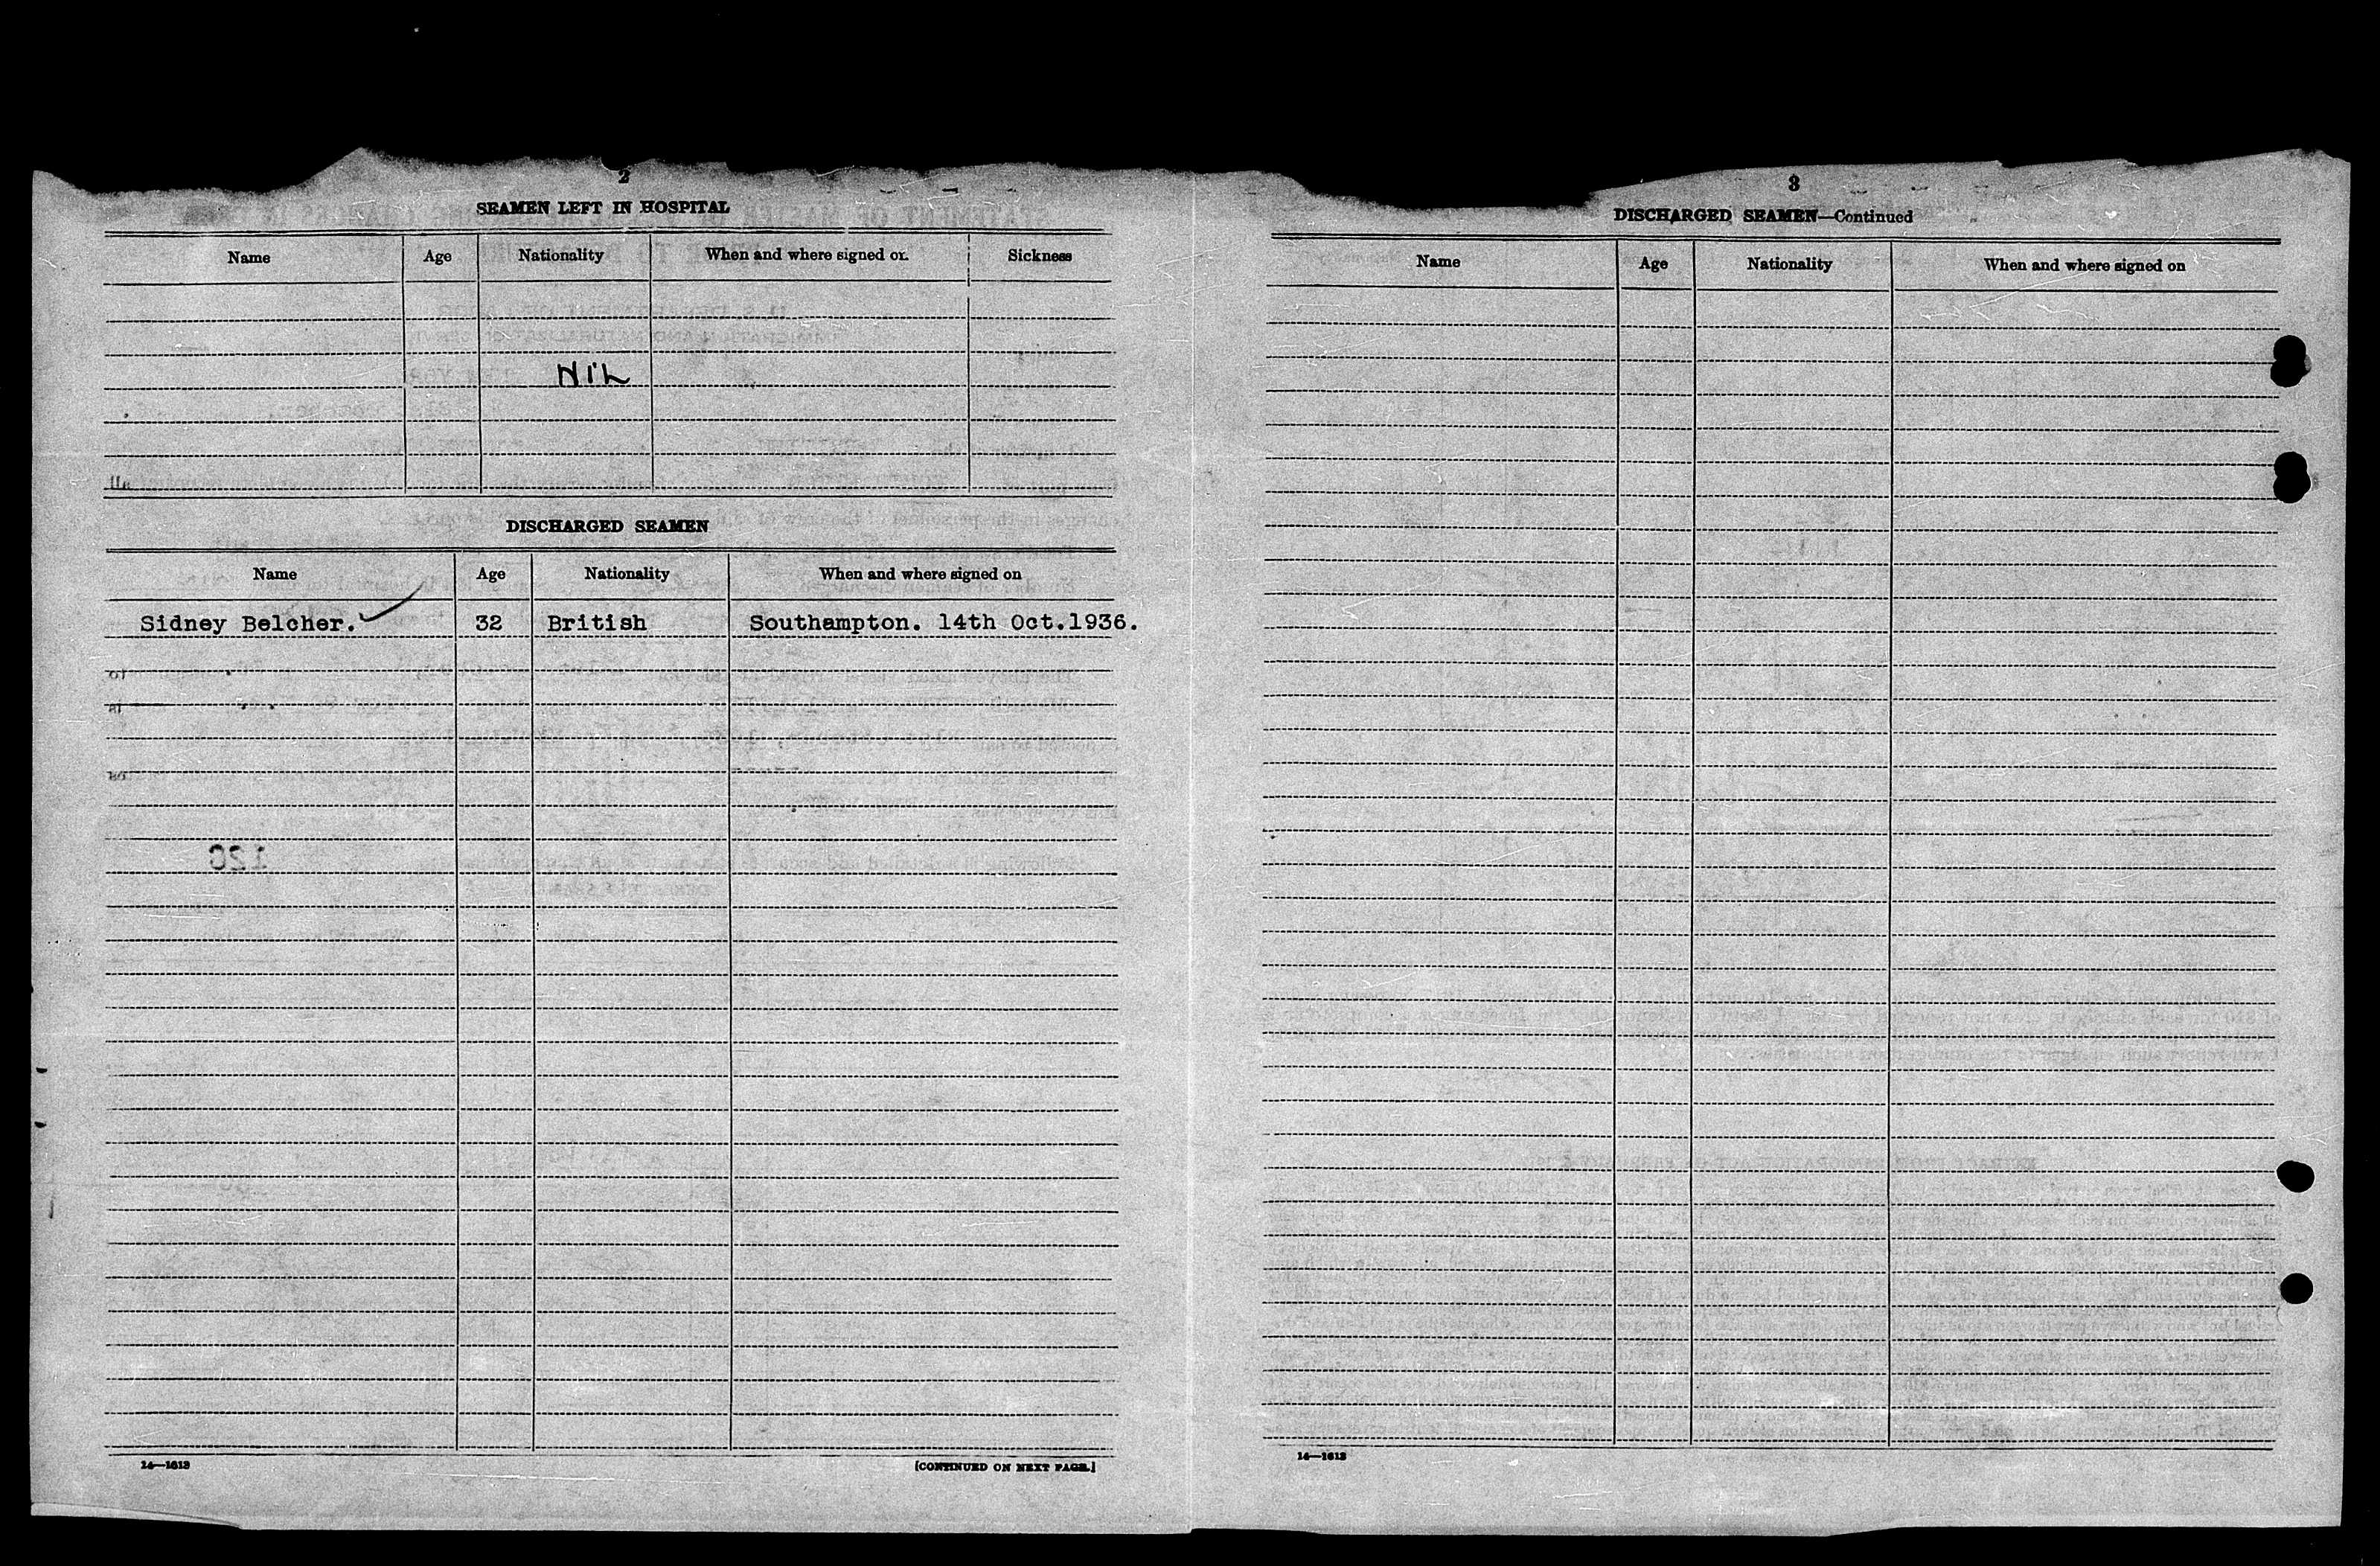 2
SEAMEN LEFT IN HOSPITAL
Name Age Nationality When and where signed on Sickness
NiL
DISCHARGED SEAMEN
Name Age Nationality When and where signed on
Sidney Belcher. 32 British Southampton. 14th Oct.1936.
14—1613
[CONTINUED ON NEXT PAGE.]
3
DISCHARGED SEAMEN—Continued
Name Age Nationality When and where signed on
14—1613